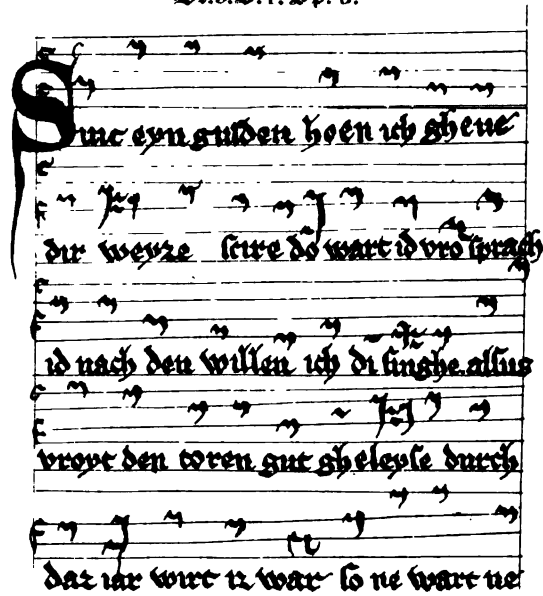 Sinc eyn gulden hoen ich gheue
dir weyze scire dō wart id vro sprach
id nach den willen ich di singhe alsus
vroyt den toren gut gheleyse durch
daz iar wirt iz war so ne wart ne